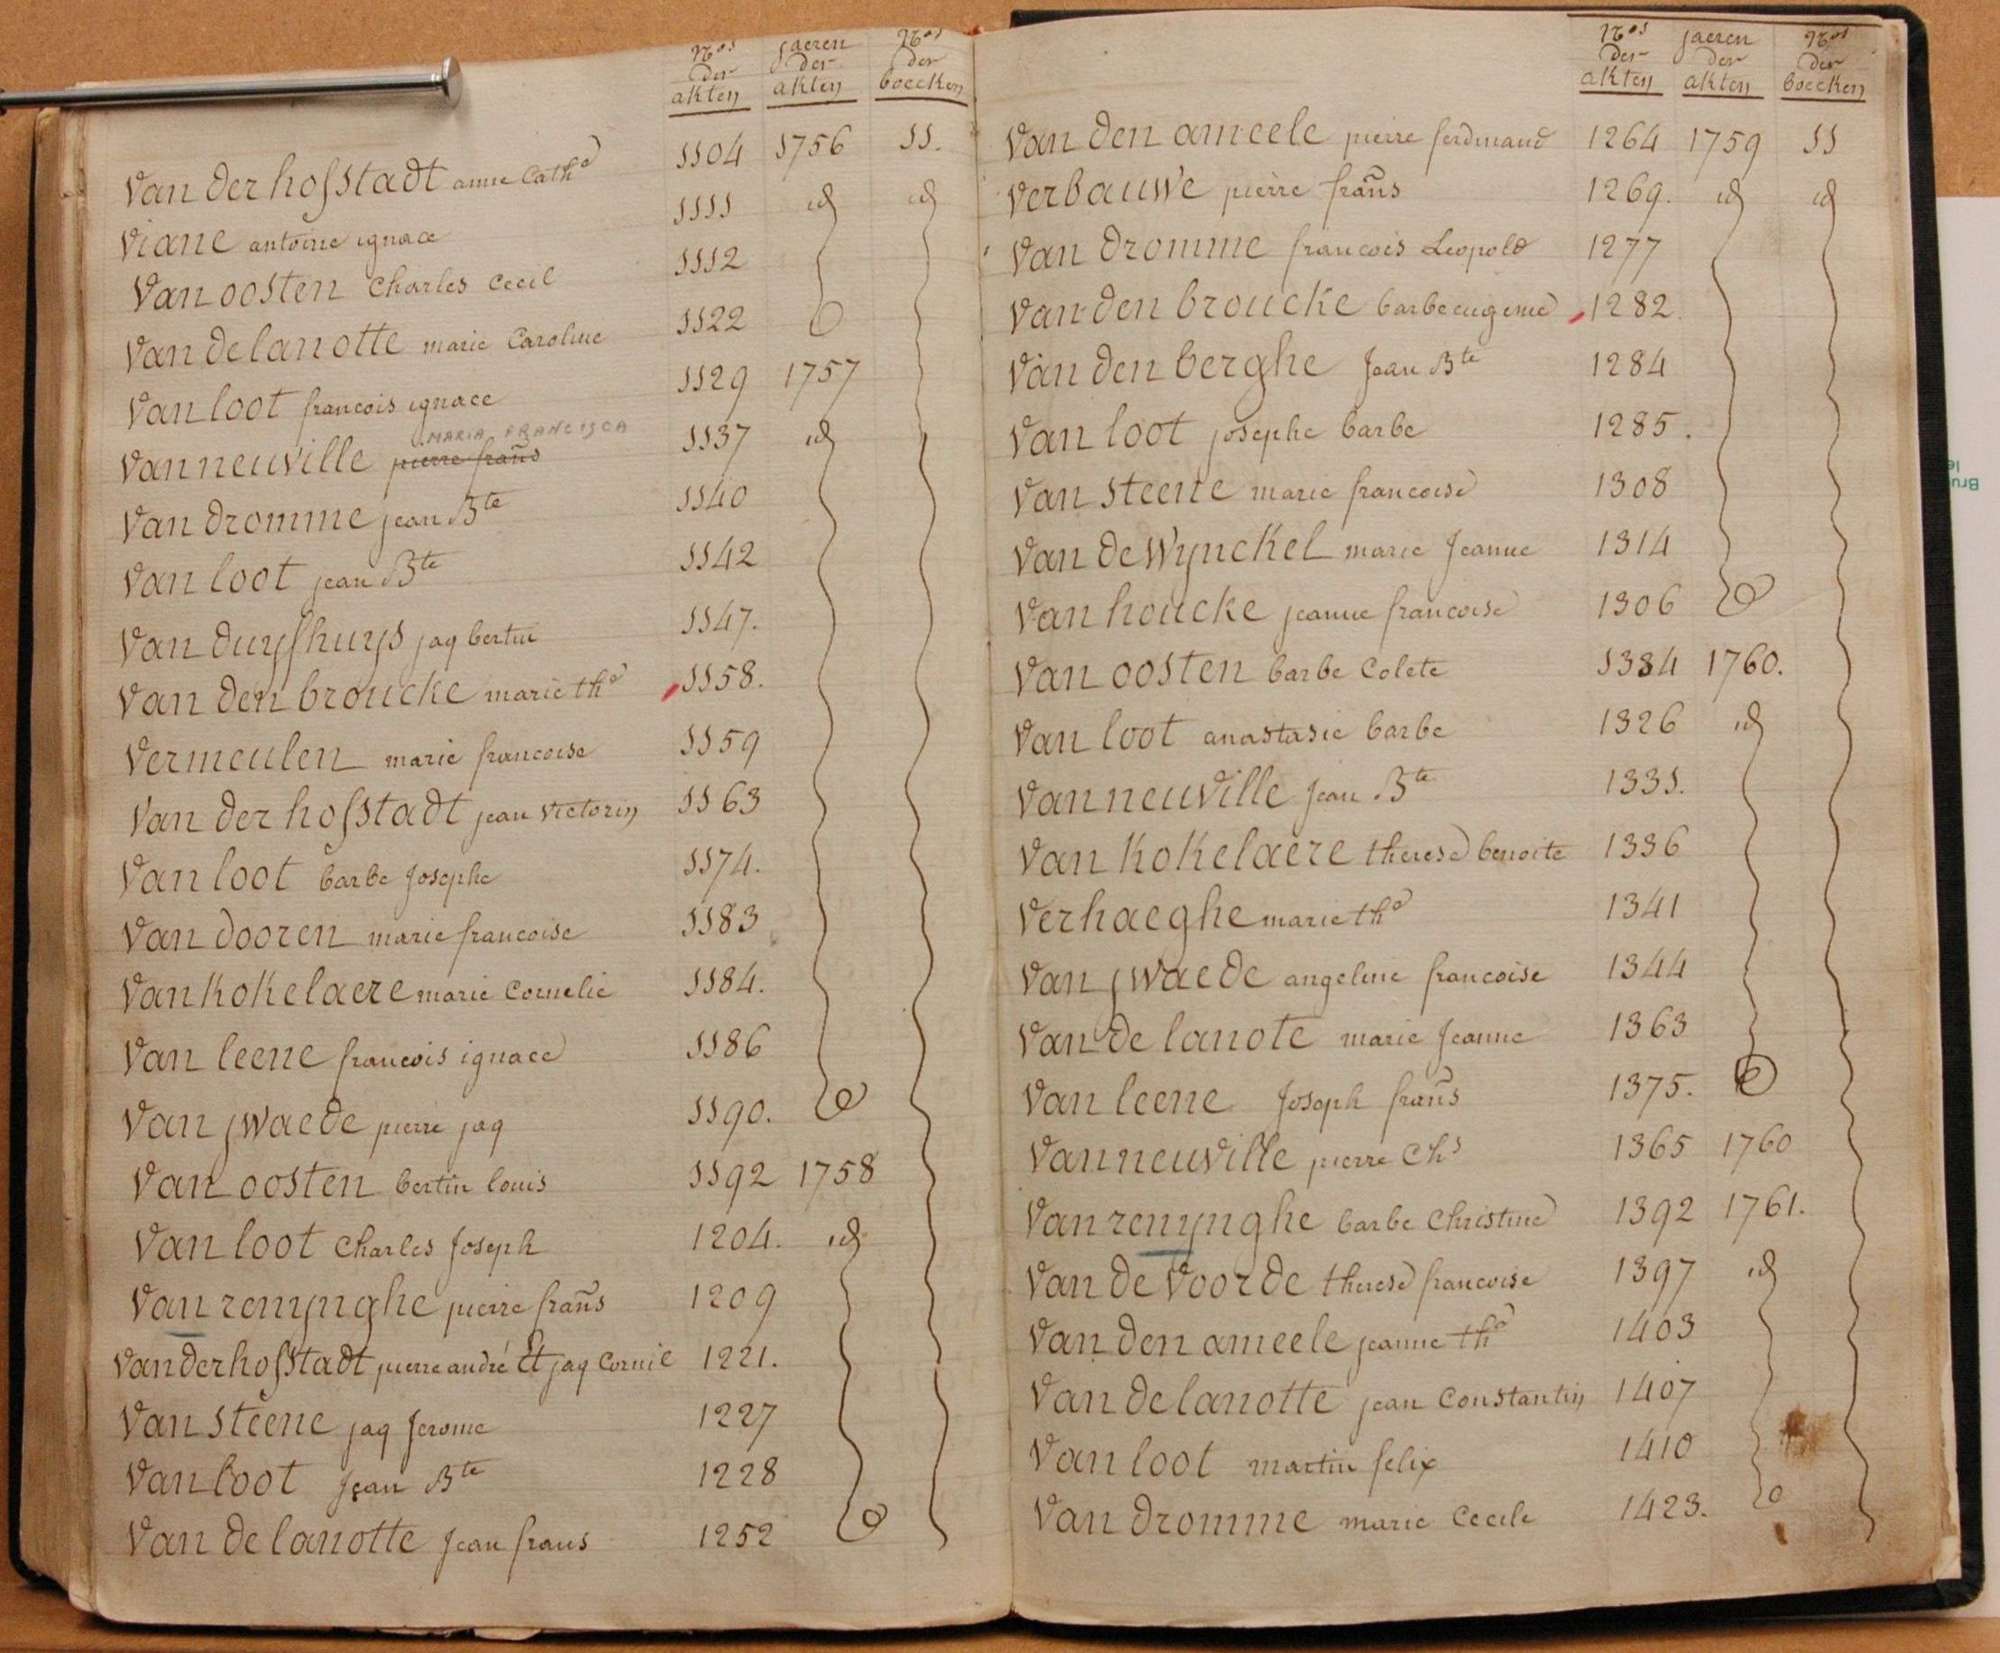 Nos der akten jaeren der akten Nos der boecken
Van der hofstadt anne Cathe 1104 1756 11.
Viane antoine ignace 1111 id id
Van oosten Charles Cecil 1112
Van de lanotte marie Caroline 1122
Van loot francois ignace 1129 1757
MARIA FRANCISCA
Vanneuville pierre frañs 1137 id
Van dromme jean Bte 1140
Van loot jean Bte 1142
Van duyfhuys jaq bertin 1147.
Van den broucke marie the 1158.
Vermeulen marie francoise 1159
Van der hofstadt jean Victorin 1163
Van loot barbe Josephe 1174.
Van dooren marie francoise 1183
Van Kokelaere marie Cornelie 1184.
Van leene francois ignace 1186
Van jwaede pierre jaq 1190.
Van oosten bertin louis 1192 1758
Van loot Charles Joseph 1204. id
Van remynghe pierre frañs 1209
Van der hofstadt pierre andré Et jaq Cornil 1221.
Van steene jaq Jerome 1227
Van loot Jean Bte 1228
Van de lanotte Jean frans 1252
Nos der akten jaeren der akten Nos der boecken
Van den ameele pierre ferdinand 1264 1759 11
Verbauwe pierre frañs 1269. id id
Van dromme francois Leopold 1277
Van den broucke barbe eugenie 1282.
Van den berghe Jean Bte 1284
Van loot josephe barbe 1285.
Van steene marie francoise 1308
Van de Wynckel marie Jeanne 1314
Van houcke jeanne francoise 1306
Van oosten barbe Colete 1384 1760.
Van loot anastasie barbe 1326 id
Vanneuville Jean Bte 1331.
Van Kokelaere therese benoite 1336
Verhaeghe marie the 1341
Van jwaede angeline francoise 1344
Van de lanote marie Jeanne 1363
Van leene Joseph frañs 1375.
Vanneuville pierre Chs 1365 1760
Van remynghe barbe Christine 1392 1761.
Van de Voorde therese francoise 1397 id
Van den ameele jeanne the 1403
Van de lanotte jean Constantin 1407
Van loot martin felix 1410
Van dromme marie Cecile 1423.